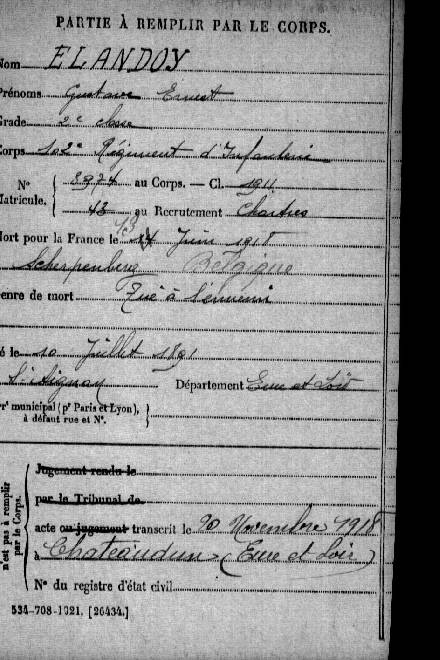 PARTIE À REMPLIR PAR LE CORPS.
Nom ELANDOY
Prénoms Gustave Ernest
Grade 2e classe
Corps 102e Régiment d'Infanterie
N° Matricule. { 8974 au Corps. — Cl. 1911
43 au Recrutement Chartres
Mort pour la France le 13 Juin 1918
Scherpenberg Belgique
Genre de mort Tué à l'ennemi
né le 10 Juillet 1891
St Aignan Département Eure et Loir
Arrt municipal (pr Paris et Lyon), à défaut rue et N°. }
n'est pas à remplir par le Corps.
Jugement rendu le
par le Tribunal de
acte ou jugement transcrit le 20 Novembre 1918
à Chateaudun (Eure et Loir)
N° du registre d'état civil
534-708-1921. [26434.]